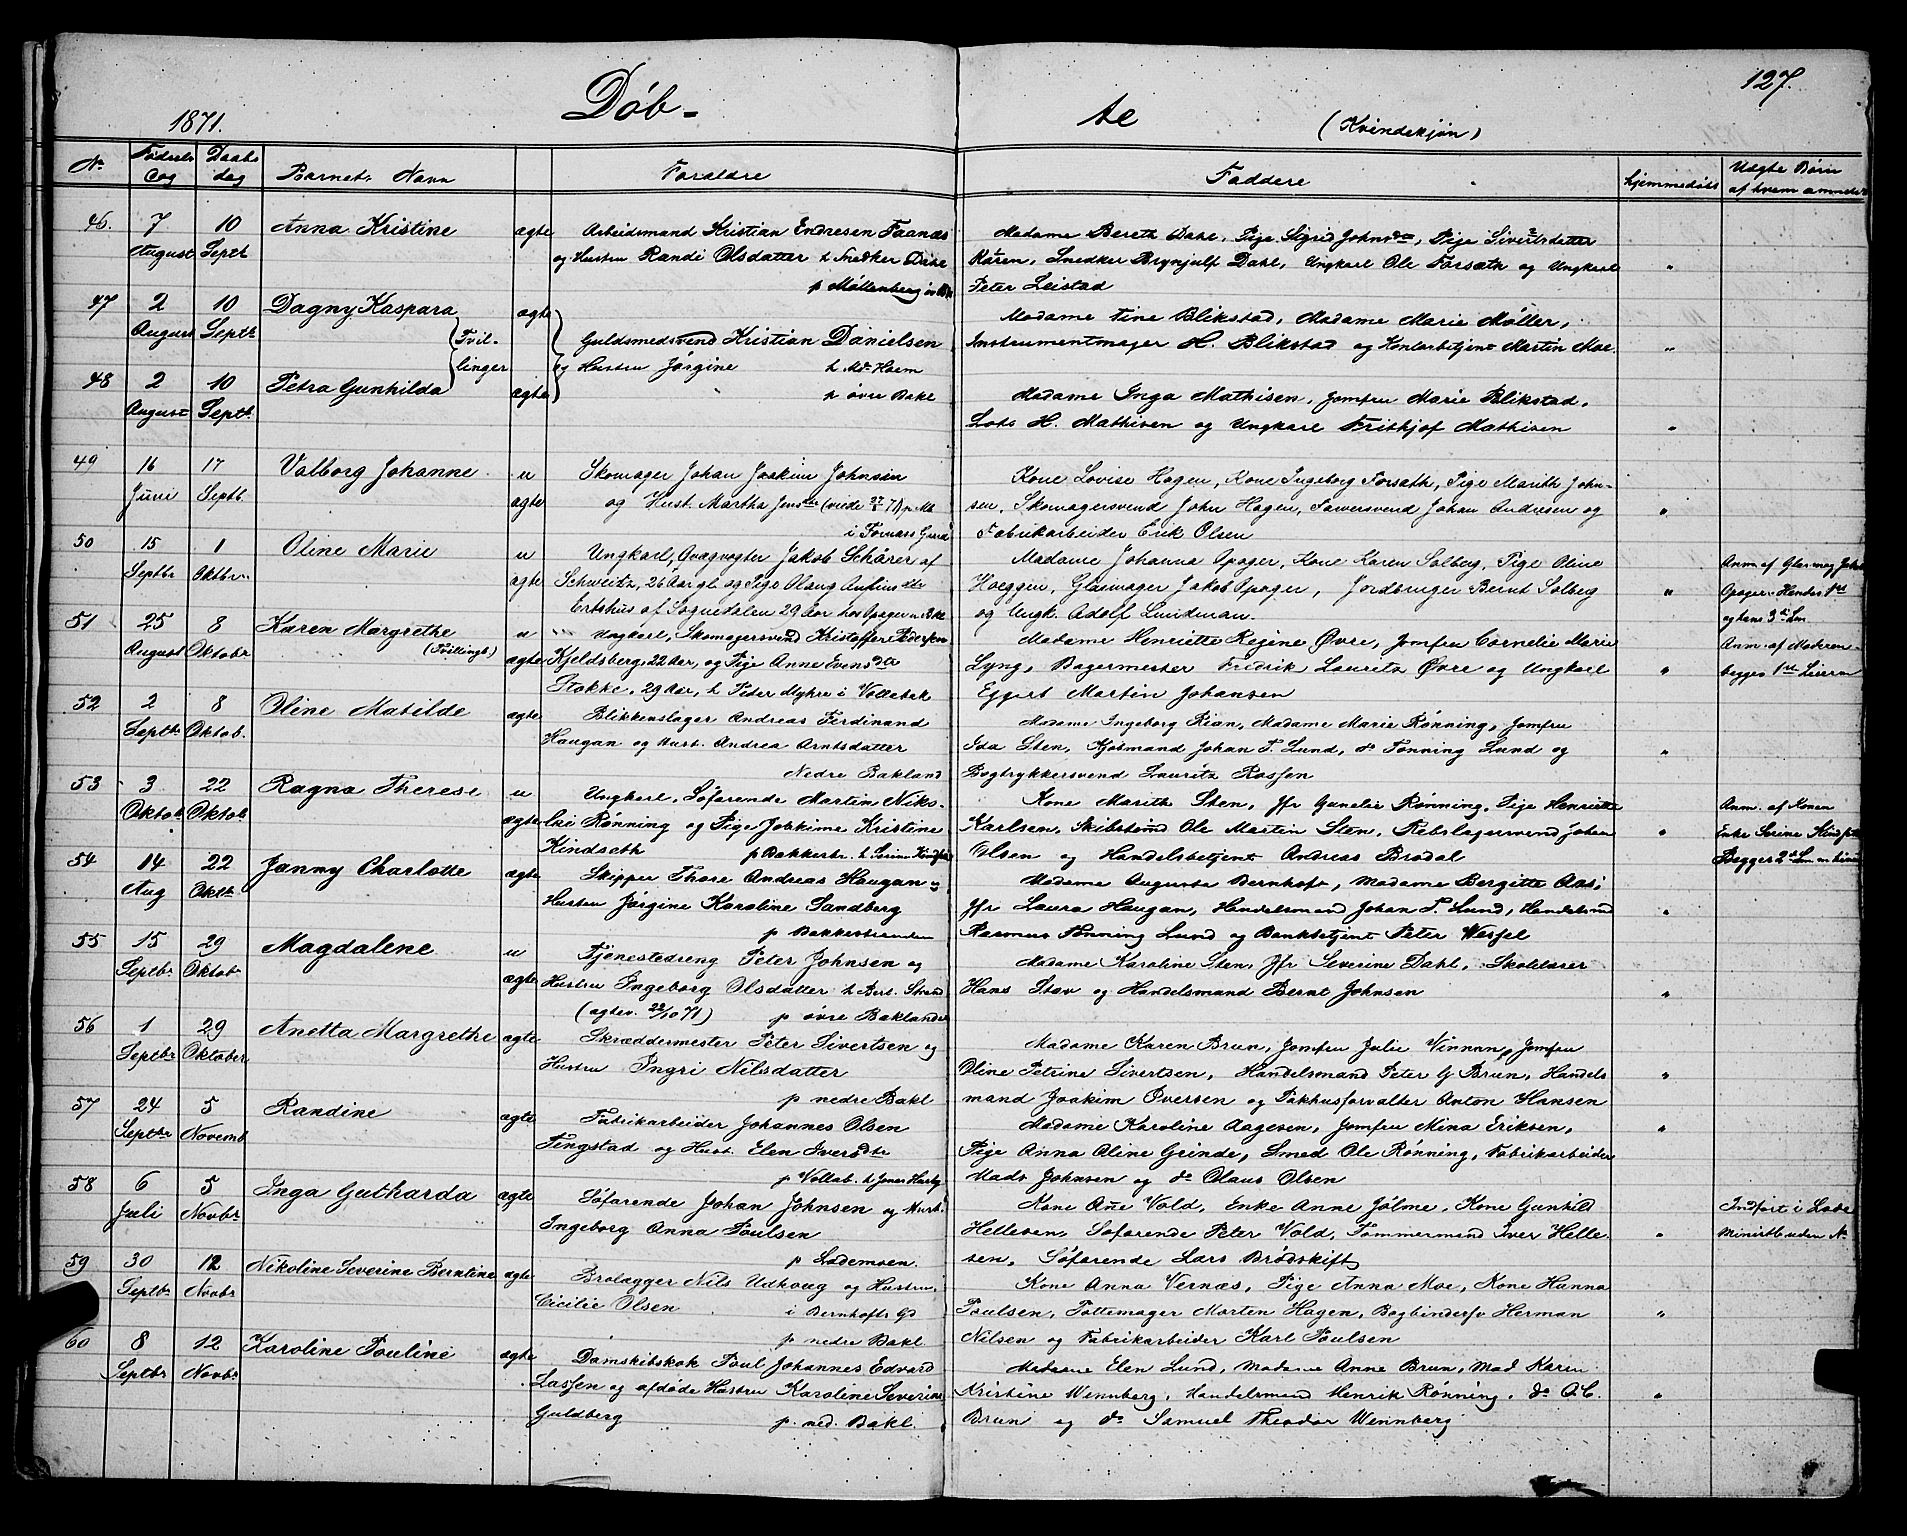 127.
1871. Døb- te (Kvindekjøn)
No. Fødsels Dag Daabs dag Barnets Navn Forældre Faddere hjemmedøbt Uægte Børn af hvem anmeldt
46. 7 August 10 Septb Anna Kristine ægte Arbeidsmand Kristian Endresen Faanæs
og Hustru Randi Olsdatter h. Snedker Dahl
p Møllenberg
Madame Beret Dahl, Pige Sigrid Johnsdr, Pige Sivertsdatter
Karen, Snedker Brynjulf Dahl, Ungkarl Ole Forsæth og Ungkarl
Peter Leistad
47 2 August 10 Septb. Dagny Kaspara ægte
{Tvil-
linger
Guldsmedsvend Kristian Danielsen
og Hustru Jørgine h. Md. Hoem
p øvre Bakl
Madame Tine Blikstad, Madame Marie Møller,
Instrumentmager H. Blikstad og Kontorbetjent Martin Moe.
48 2 August 10 Septb. Petra Gunhilda ægte
Madame Inga Mathisen, Jomfru Marie Blikstad,
Lods H. Mathisen og Ungkarl Frithjof Mathisen
49 16 Juni 17 Septb Valborg Johanne u ægte Skomager Johan Joakim Johnsen
og Hust. Martha
i Fornæss Gaard
Kone Lovise Hagen, Kone Ingeborg Forsæth, Pige Marith John-
sen, Skomagersvend John Hagen, Farversvend Johan Andresen og
Fabrikarbeider Erik Olsen
50 15 Septbr 1 Oktbr. Oline Marie u ægte Ungkarl, Qvægvogter Jakob Schärer af
Schweitz, 26 Aar gl. og Pige Olaug
af Soknedalen 29 Aar hos Opager
Madame Johanna Opager, Kone Karen Solberg, Pige Oline
Hoeggen, Glasmager Jakob Opager, Jordbruger Bernt Solberg
og Ungk. Adolf Lundman.
Anm. af Glasmag. Jakob
Opager. Hendes 1st
og hans 3die Lm
51 25 August 8 Oktobr Karen Margrethe
(Tvillingb)
u ægte Ungkarl, Skomagersvend Kristoffer Pedersen
Kjeldsberg 22 Aar, og Pige Anne Evensdtr
Stokke, 29 Aar, h. Peder Myhre i Vollabak
Madame Henriette Regine Øvre, Jomfru Cornelie Marie
Lyng, Bagermester Fredrik Lauritz Øvre og Ungkarl
Eggert Martin Johansen
Anm. af Moderen
begges 1st Leierm
52 2 Septbr 8 Oktob. Oline Matilde ægte Blikkenslager Andreas Ferdinand
Haugan og Hust. Andrea Arntsdatter
Nedre Bakland
Madame Ingeborg Rian, Madame Marie Rønning, Jomfru
Ida Sten, Kjøbmand Johan T. Lund, do Tønning Lund og
Bogtrykkersvend Lauritz Rossen
53 3 Oktob. 22 Oktob. Ragna Therese u ægte Ungkarl, Søfarende Martin Niko-
lai Rønning og Pige Joakime Kristine
Kindseth p Bakkestr.
Kone Marith Sten, Jfr Gunelie Rønning, Pige Henriette
Karlsen, Skibstømd Ole Martin Sten, Rebslagersvend Johan
Olsen og Handelsbetjent Andreas Brodal
Anm. af Konen
Enke Serine
Begges 2d Lm
54 14 Aug 22 Oktb Janny Charlotte ægte Skipper Thore Andreas Haugan og
Hustru Jørgine Karoline Sandberg
p Bakkestranden
Madame Augusta Bernhoft, Madame Bergitte Aas,
Jfr Laura Haugan, Handelsmand Johan T. Lund, Handelsmd
Rasmus Tønning Lund og Bankbetjent Peter Wessel
55 15 Septbr 29 Oktobr Magdalene u ægte Tjenestedreng Peter Johnsen og
Hustru Ingeborg Olsdatter h. Brt. Strand
(ægtev. 22/10 71) p øvre Baklandet
Madame Karoline Sten, Jfr Severine Dahl, Skolelærer
Hans Stav og Handelsmand Bernt Johnsen
56 1 Septbr 29 Oktober Anetta Margrethe ægte Skræddermester Peter Sivertsen og
Hustru Ingri Nilsdatter
p nedre Bakl
Madame Karen Brun, Jomfru Julie Vinnan, Jomfru
Oline Petrine Sivertsen, Handelsmand Peter G Brun, Handels
mand Joakim Iversen og Pakhusforvalter Anton Hansen
57 24 Septbr 5 Novemb Randine ægte Fabrikarbeider Johannes Olsen
Tingstad og Hust. Elen Iversdtr
p Vollab. h. Jener Husby
Madame Karoline Aagesen, Jomfru Mina Eriksen,
Pige Anna Aline Grinde, Smed Ole Rønning, Fabrikarbeider
Mads Johnsen og do Olaus Olsen
58 6 Juli 5 Novbr Inga Gutharda ægte Søfarende Johan Johnsen og Hust.
Ingeborg Anna Poulsen
p Lademoen.
Kone Ane Vold, Enke Anne Jølme, Kone Gunhild
Hellesen, Søfarende Peter Vold, Tømmermand Iver Helle
sen, Søfarende Lars Brødskift
Indført i Lade
Ministb. uden No
59 30 Septbr 12 Novbr Nikoline Severine Berntine ægte Brolægger Nils Udhoug og Hustru,
Cicilie Olsen i Bernhofts Gd
p nedre Bakl
Kone Anna Vernæs, Pige Anna Moe, Kone Hanna
Poulsen, Pottemager Morten Hagen, Bogbindersv Herman
Nilsen og Fabrikarbeider Karl Poulsen
60 8 Septbr 12 Novbr Karoline Pouline ægte Damskibskok Poul Johannes Edvard
Lassen og afdøde Hustru Karoline Severine
Guldberg p. ned. Bakl.
Madame Elen Lund, Madame Anne Brun, Mad Karen
Kristine Wennberg, Handelsmand Henrik Rønning, do O.C.
Brun og do Samuel Theodor Wennberg